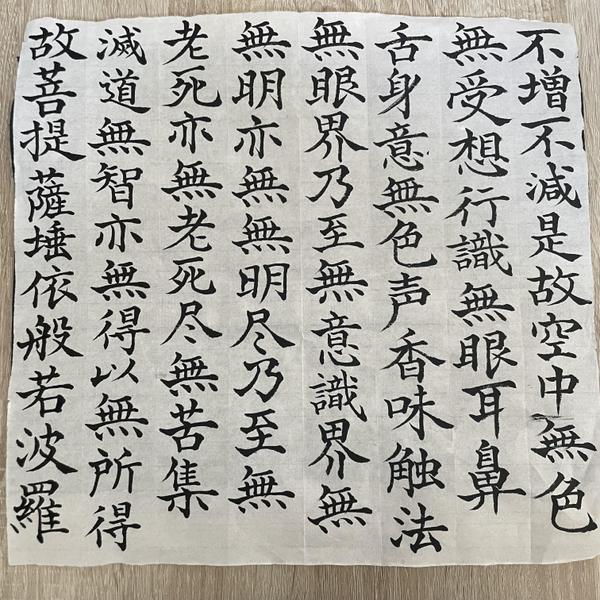 不増不減是故空中無色
無受想行識無眼耳鼻
舌身意無色声香味触法
無眼界乃至無意識界無
無明亦無無明尽乃至無
老死亦無老死尽無苦集
滅道無智亦無得以無所得
故菩提薩埵依般若波羅